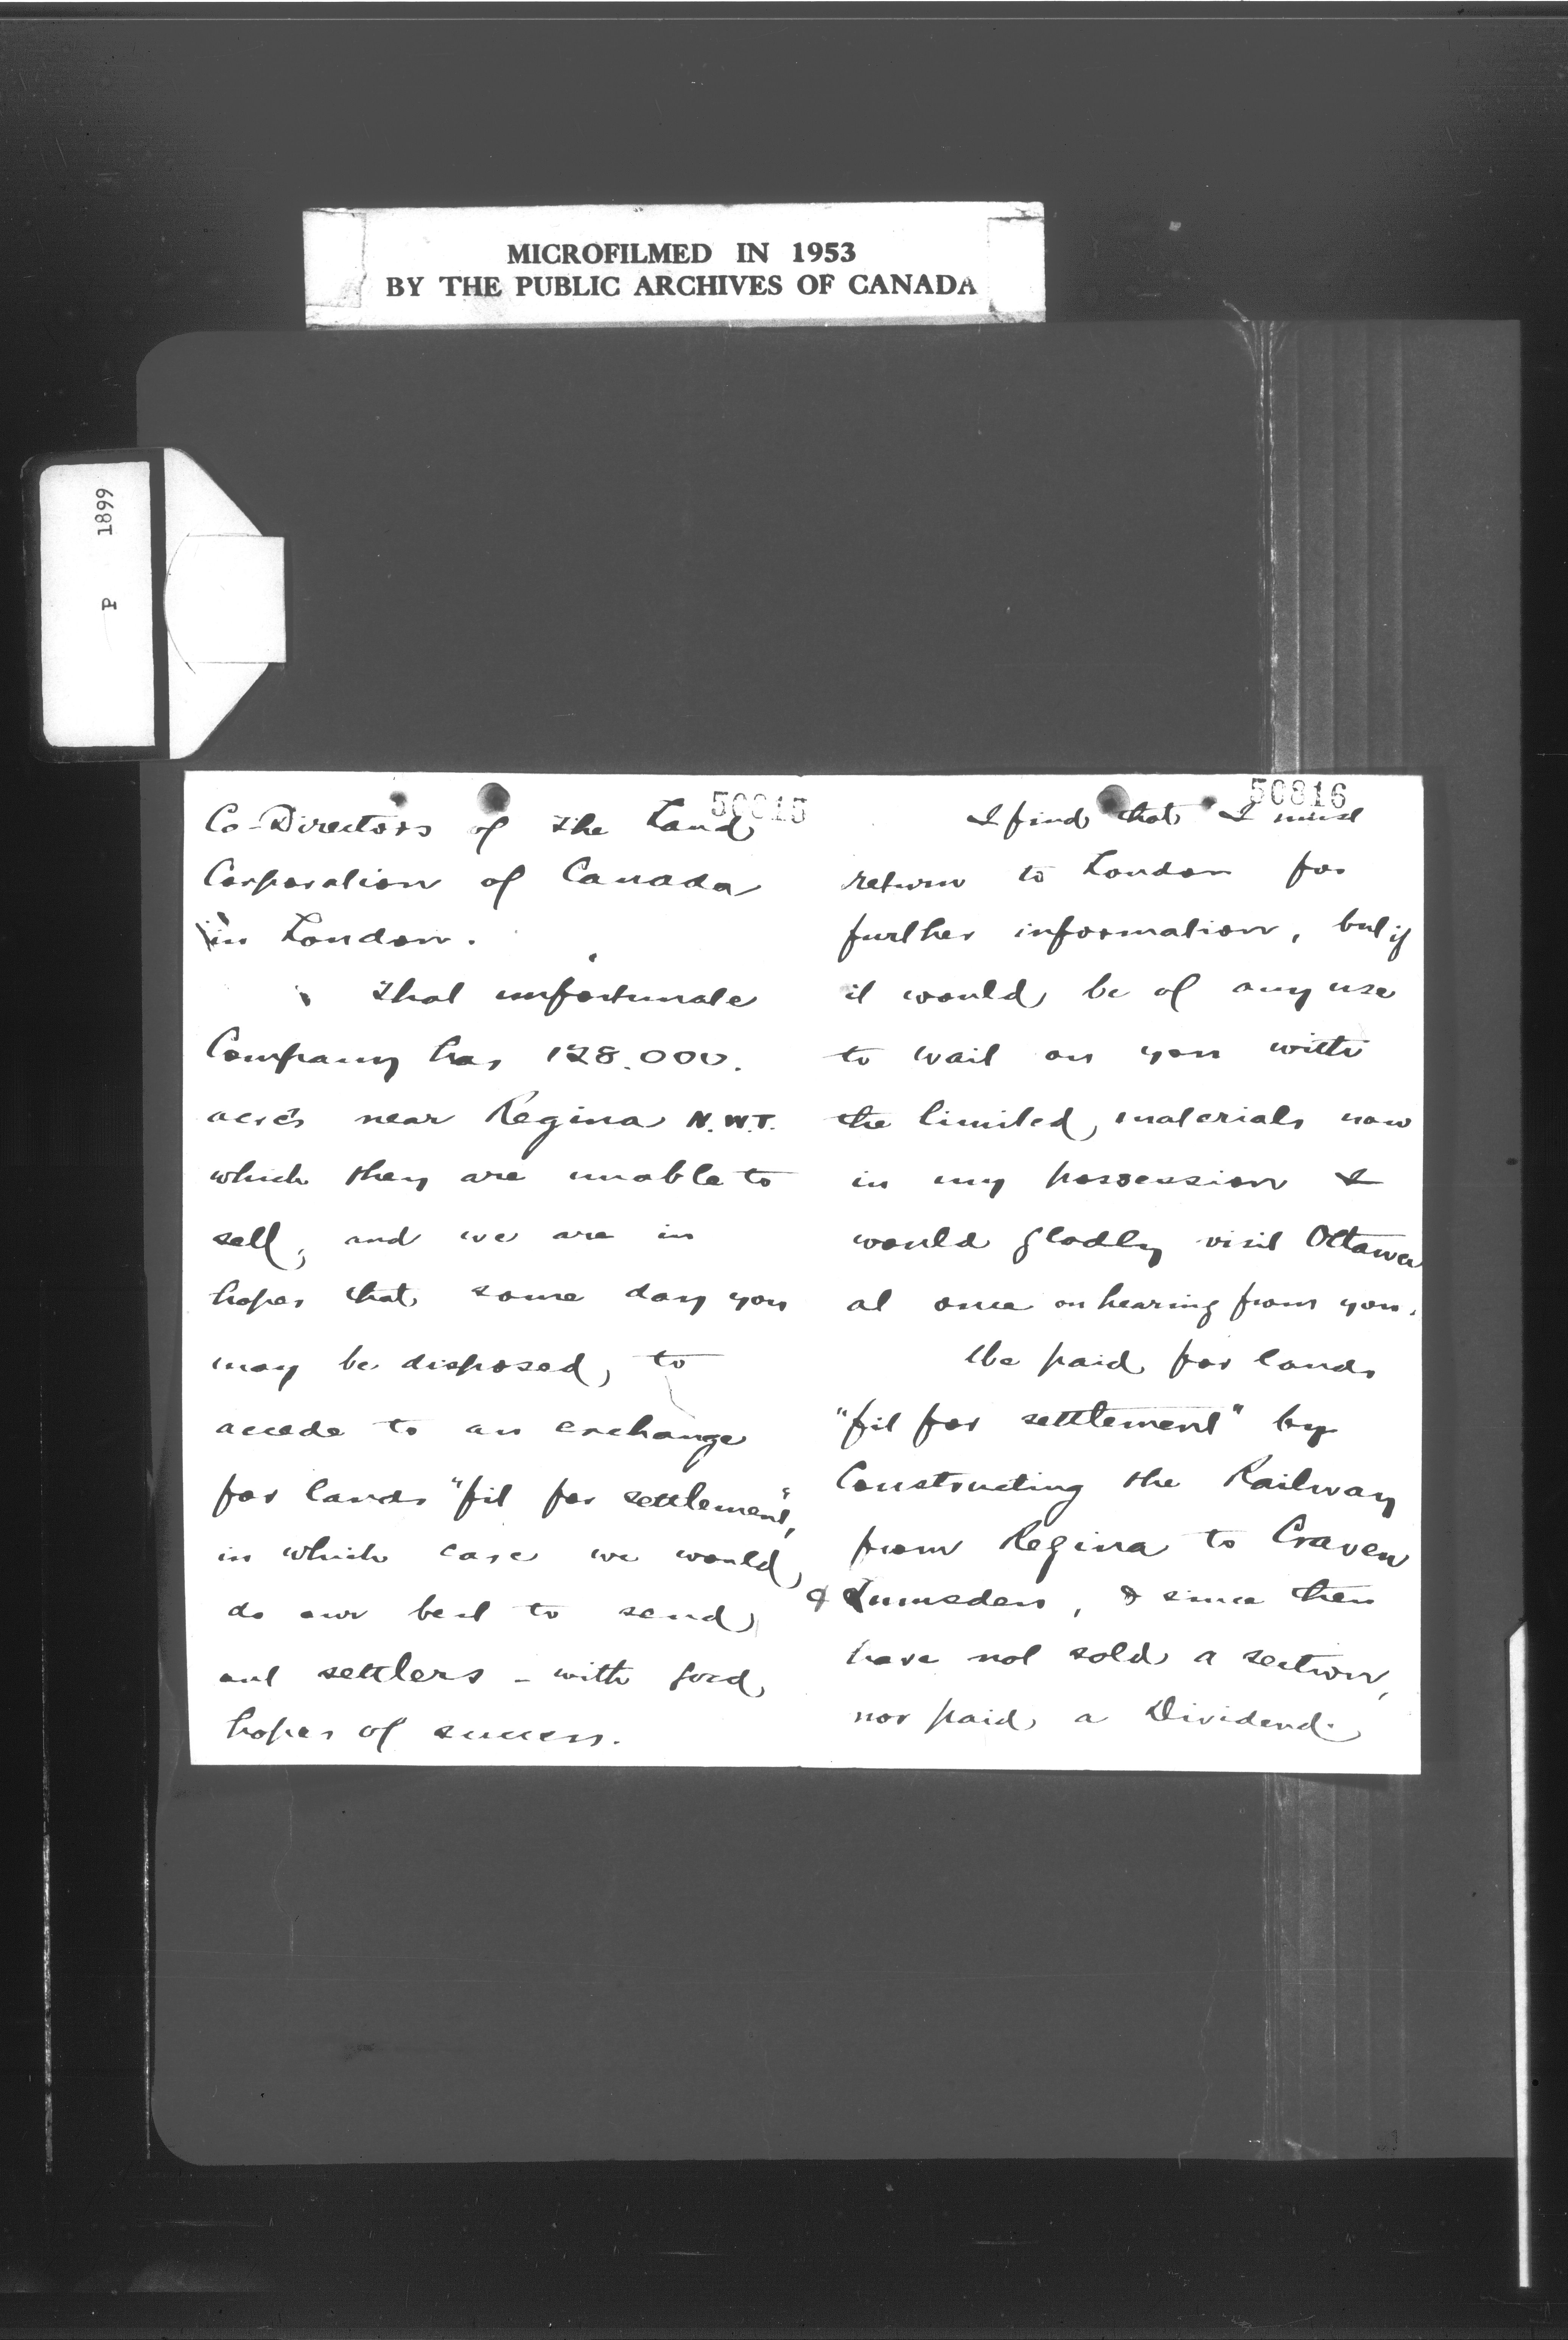 MICROFILMED IN 1953
BY THE PUBLIC ARCHIVES OF CANADA
P 1899
50815
Co-Directors of the Land
Corporation of Canada
in London.
That unfortunate
Company has 128.000.
acres near Regina N.W.T.
which they are unable to
sell, and we are in
hopes that some day you
may be disposed, to
accede to an exchange
for lands "fit for settlement",
in which case we would,
do our best to send
out settlers - with good
hopes of success.
50816
I find that I must
return to London for
further information, but if
it would be of any use
to wait on you with
the limited materials now
in my possession I
would gladly visit Ottawa
at once on hearing from you.
We paid for lands
"fit for settlement" by
Constructing the Railway
from Regina to Craven
& Lumsden, & since then
have not sold a section,
nor paid a Dividend.